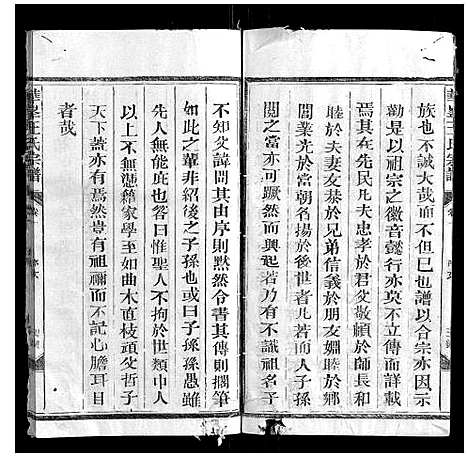 族也不誠大哉而不但巳也譜以合宗亦因示
是以祖宗之徽音懿行亦莫不立傳而詳載
焉其在先民凡夫忠孝於君父敬順於師長和
睦於夫妻友恭於兄弟信義於朋友婣睦於鄉
閭業光於當朝名揚於後世者凡若而人
閱之當亦可蹶然而興起若乃有不識祖名子
不知父諱問其由序則默然令書其傳則擱筆
如此之輩非紹後之子孫也或曰子孫愚雖
先人無能庇也答曰惟聖人不拘於世類中人
以上亦有不無憑籍家學至如曲木直枝頑父哲子
天下蓋亦有焉然豈有祖禰而不記心膽耳目
者哉
王氏宗譜